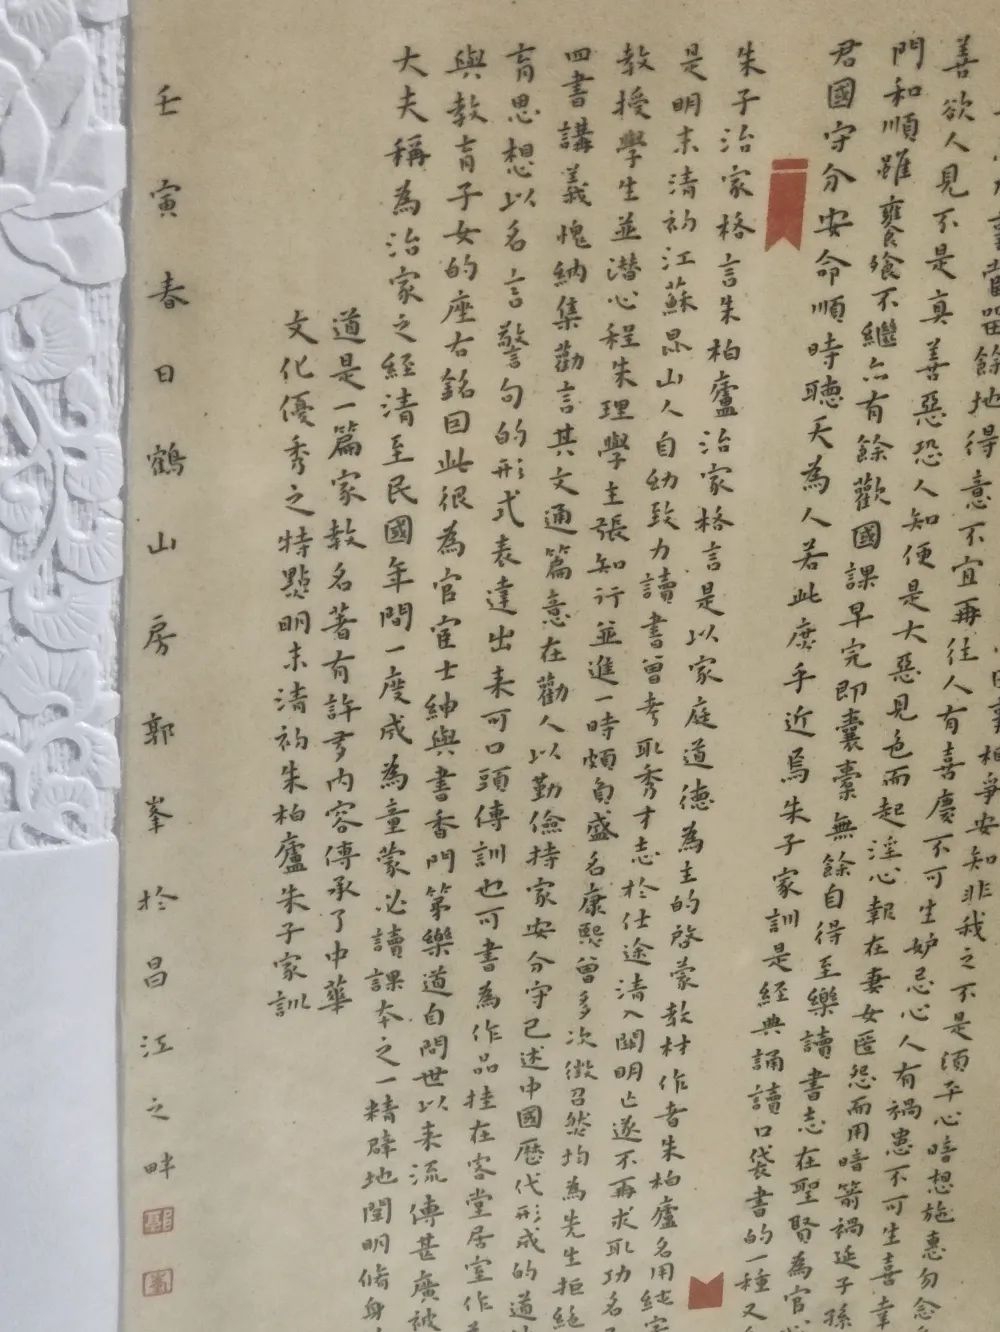 事當留餘地得意不宜再往人有喜慶不可生妒忌心人有禍患不可生喜幸
善欲人見不是真善惡恐人知便是大惡見色而起淫心報在妻女匿怨而用暗箭禍延子孫
門和順雖饔飧不繼亦有餘歡國課早完即囊橐無餘自得至樂讀書志在聖賢為官
君國守分安命順時聽天為人若此庶乎近焉朱子家訓是經典誦讀口袋書的一種又
朱子治家格言朱柏廬治家格言是以家庭道德為主的啓蒙教材作者朱柏廬名用純
是明末清初江蘇昆山人自幼致力讀書曾考取秀才志於仕途清入關明亡遂不再求取功名
教授學生並潛心程朱理學主張知行並進一時頗負盛名康熙曾多次徵召然均為先生拒絕
四書講義愧納集勸言其文通篇意在勸人以勤儉持家安分守己述中國歷代形成的道
育思想以名言警句的形式表達出來可口頭傳訓也可書為作品挂在客堂居室作
與教育子女的座右銘因此很為官宦士紳與書香門第樂道自問世以來流傳甚廣被
大夫稱為治家之經清至民國年間一度成為童蒙必讀課本之一精辟地闡明脩身
道是一篇家教名著有許多内容傳承了中華
文化優秀之特點明末清初朱柏廬朱子家訓
壬寅春日鶴山房郭峯於昌江之畔